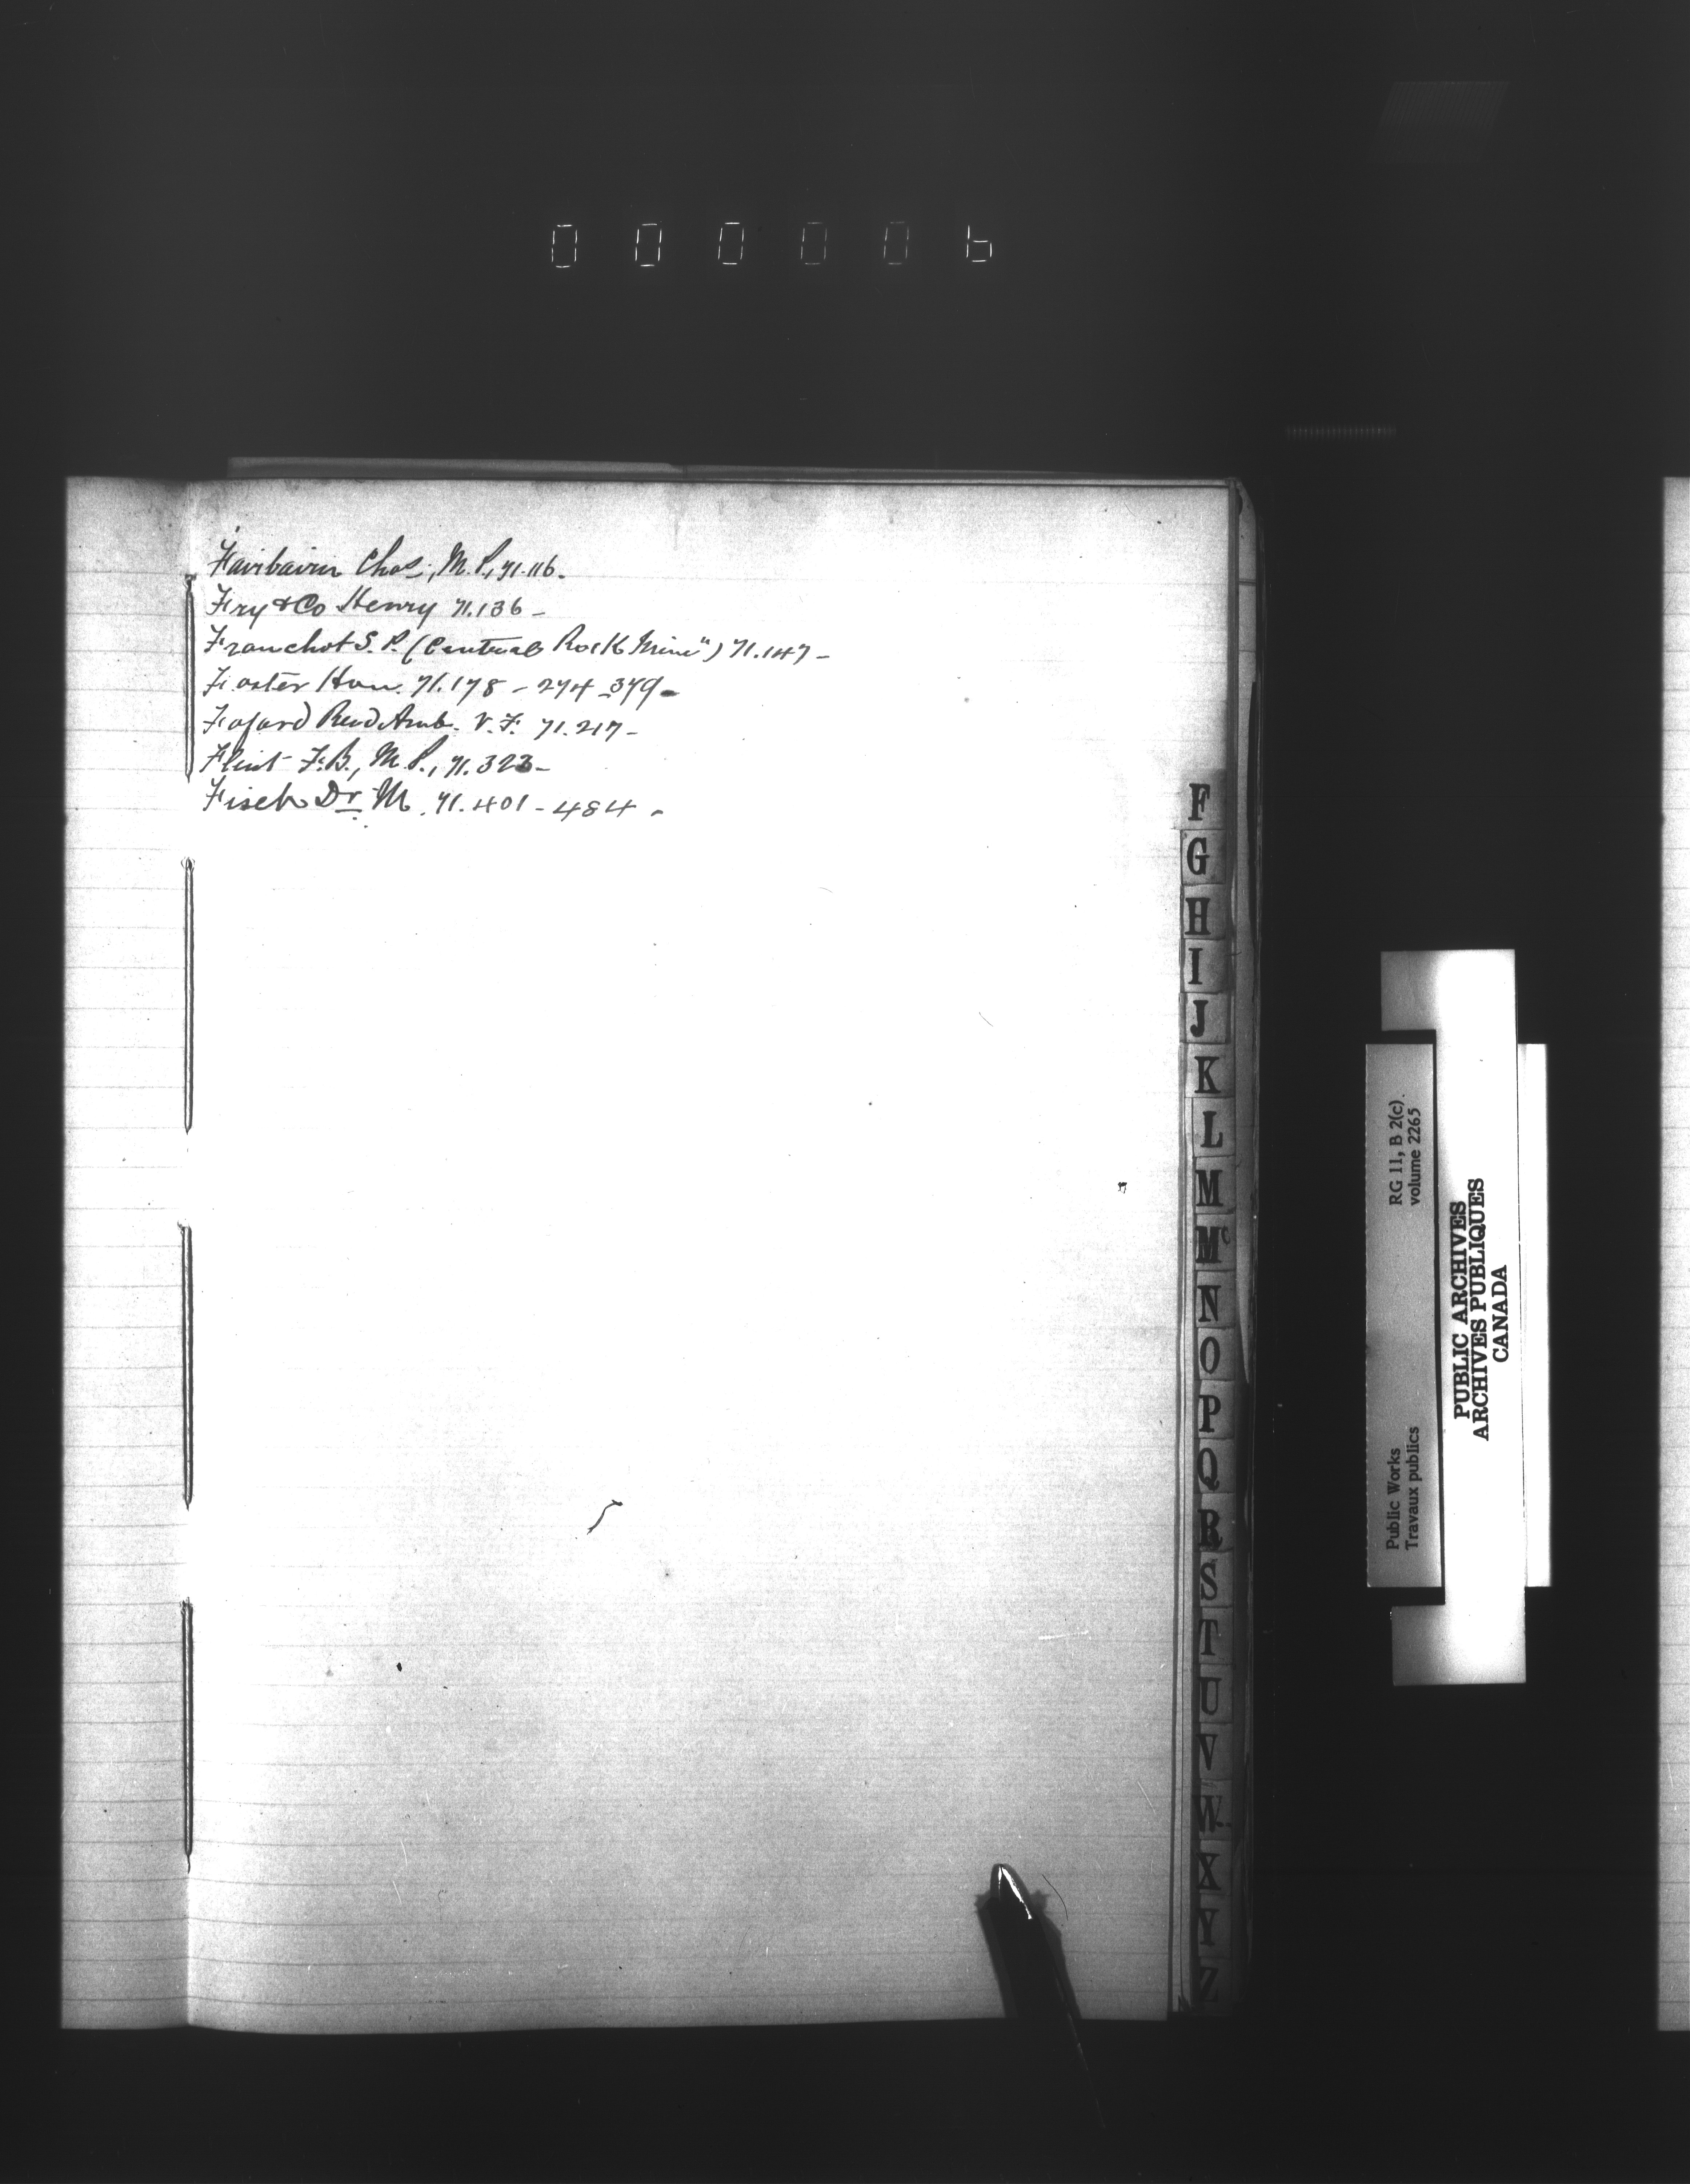 000006
Fairbairn Chas, M.P., 71.116.
Fry & Co Henry 71.136 -
Franchot S.P. (Central Rock Mine") 71.147 -
Foster Hon. 71.178 - 274 - 379 -
Fafard Revd Amb. V.F. 71.217 -
Flint F.B., M.P., 71.323 -
Fisch Dr. M. 71.401 - 484 -
F
G
H
I
J
K
L
M
Mc
N
O
P
Q
R
S
T
U
V
W
X
Y
Z
RG 11, B 2(c).
volume 2265
Public Works
Travaux publics
PUBLIC ARCHIVES
ARCHIVES PUBLIQUES
CANADA